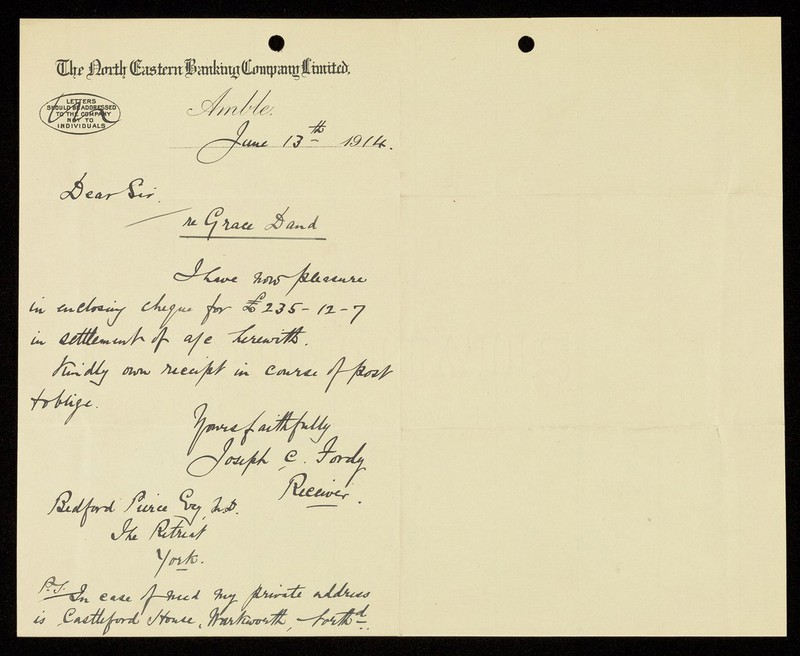 The North Eastern Banking Company Limited.
LETTERS
SHOULD BE ADDRESSED
TO THE COMPANY
NOT TO
INDIVIDUALS
Amble.
June 13th 1914.
Dear Sir.
re Grace Dand
I have now pleasure
in enclosing cheque for £235-12-7
in settlement of a/c herewith.
Kindly own receipt in course of post
& oblige.
Yours faithfully
Joseph C. Fordy
Receiver.
Bedford Pierce Esq M.D.
The Retreat
York.
P.S. In case of need my private address
is Castleford House, Warkworth, Northd.